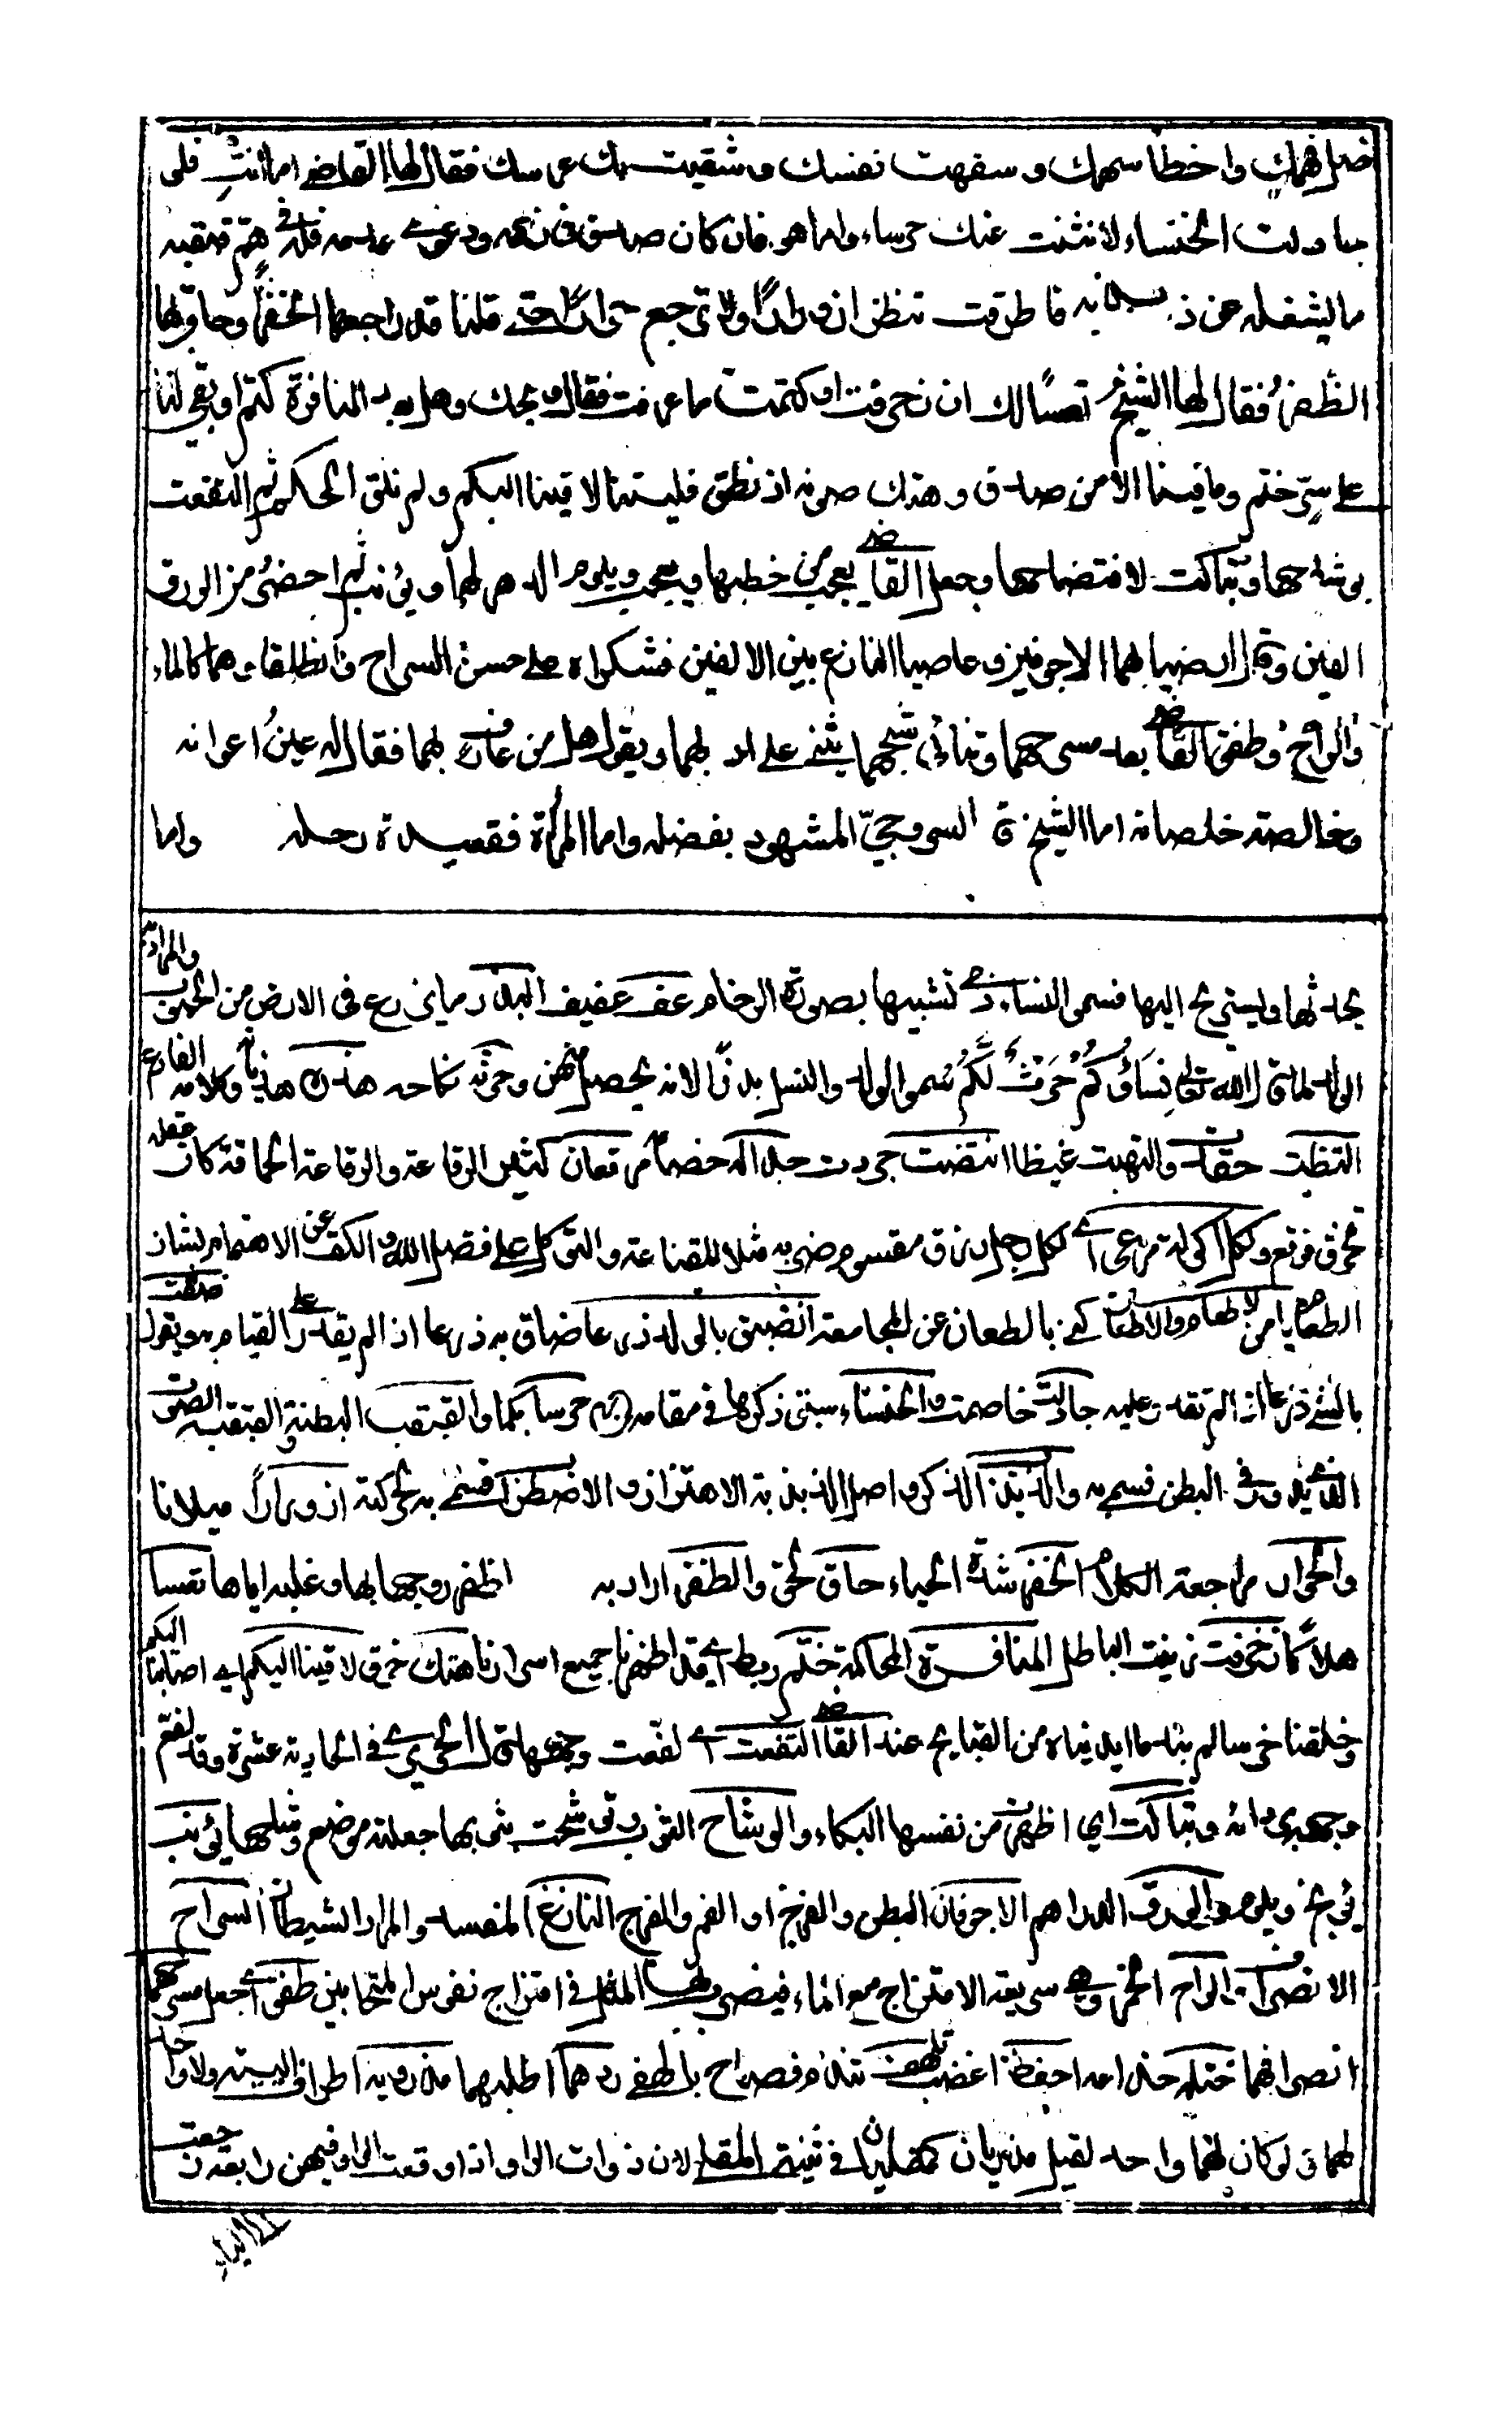 ضل فهمك واخطا سهمك وسفهت نفسك وشقيت بك عرسك فقال لها القاضي اما انتِ فلو
جادلت الخنساء لانثنت عنك خرساء واما هو فان كان صدق في زعمه ودعوى عدمه فله في هم قبقبه
ما يشغله عن ذبذبه فاطرقت تنظر ازورارًا ولا ترجع حوارًا حتى قلنا قد راجعها الخفر او حاق بها
الظفر فقال لها الشيخ تعسًا لك ان زخرفت او كتمت ما عرفت فقالت ويحك وهل بعد المنافرة كتم او بقي لنا
على سرّ ختم وما فينا الا من صدق وهتك صونه اذ نطق فليتنا لاقينا البكم ولم نلق الحكم ثم التفعت
بوشاحها وتباكت لافتضاحها وجعل القاضي يعجب من خطبهما ويعجب ويلوم الدهر لهما ويؤنب ثم احضر من الورق
الفين وقال ارضيا بهما الاجوفين وعاصيا النازغ بين الالفين فشكراه على حسن السراح وانطلقا وهما كالماء
والراح وطفق القاضي بعد مسرحهما وتنائي شبحهما يثني على ادبهما ويقول هل من عارف بهما فقال له عين اعوانه
وخالصة خلصانه اما الشيخ ف السروجيّ المشهود بفضله واما المرأة فقعيدة رحله واما
والمراد به
يحدثها ويستريح اليها فسمى النساء تشبيها بصورة الرخام عف عفيف البذر ما يزرع في الارض من الحبوب
الولد لما قال الله تعالى نِسَاؤُكُمْ حَرْثٌ لَّكُمْ سموا الولد والنسل بذرًا لانه يحصل منهن وحرثه نكاحه هذيانه وكلامه الفارغ
التظت حقدت والتهبت غيظا انتضت جردت جداله خصام مرقعان كثير الرقاعة والرقاعة الحماقة كان عقله
تمزق فرقع ولكل اكولة مرعى اي لكل رجل رزق مقسوم ضربه مثلا للقناعة والتوكل على فضل الله والكف عن الاهتمام لشان
الطعام الطعام والاطعام كنى بالطعان عن المجامعة انضيق بالولد ذرعا ضاق به ذرعا اذا لم يقدر على القيام به ويقول ضقت
بالشيء ذرعا اذا لم تقدر عليه جادلت خاصمت والخنساء سبق ذكرها في مقامه خرسا بكما والقبقب البطن والقبقبة الصوت
الذي يدور في البطن فسمي به والذبذب الذكر واصل الذبذبة الاهتزاز والاضطراب فسمي به لحركته ازورارًا ميلانا
والحوار مراجعة الكلام الخفر شدة الحياء حاق لحق والظفر اراد به ظفر زوجها بها وغلبه اياها تعسا
هلاكا زخرفت زينت الباطل المنافرة المحاكمة ختم ربط اي قد اظهرنا جميع اسرارنا هتك خرق لاقينا البكم اي اصابنا البكم
وخلقنا خرسا لم نبد ما ابديناه من القبايح عند القاضي التفعت اي لفعت وجهها قال الحريري في الحادية عشرة وقد لفع
وجهه بردائه وتباكت اي اظهرت من نفسها البكاء والوشاح الثوب وتوشحت بثوبها جعلته موضع وشاحها يؤنب
يوبخ ويلوم والورق الدراهم الاجوفان البطن والفرج او الفم والفرج النازغ المفسد والمراد الشيطان السراح
الانصراف والراح الخمر وهي سريعة الامتزاج مع الماء فيضرب بها المثل في امتزاج نفوس المتحابين طفق اي جعل مسرحهما
انصرافهما ختله خداعه احفظ اغضب تلهف تندم فصاح بالهفى ردهما اطلبهما مذرويه اطراف اليته ولا واحد
لهما و لو كان لهما واحد لقيل مذريان كمقليان في تثنية المقلى لان ذوات الواو اذا وقعت الواو فيهن رابعة رجعت